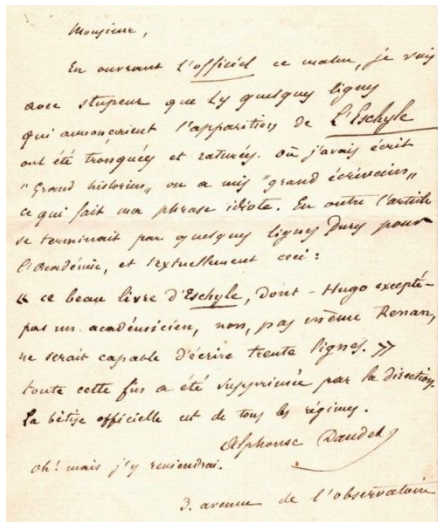 Monsieur,
En ouvrant l'officiel ce matin, je vois
avec stupeur que les quelques lignes
qui annonçaient l'apparition de L'Eschyle
ont été tronquées et raturées. Où j'avais écrit
"Grand historien" on a mis "grand écrivain"
ce qui fait ma phrase idiote. En outre l'article
se terminait par quelques lignes dures pour
l'Académie, et textuellement ceci :
« ce beau livre d'Eschyle, dont - Hugo excepté -
pas un académicien, non, pas même Renan,
ne serait capable d'écrire trente lignes. »
toute cette fin a été supprimée par la direction.
La bêtise officielle est de tous les régimes.
Alphonse Daudet
oh! mais j'y reviendrai.
3. avenue de l'observatoire